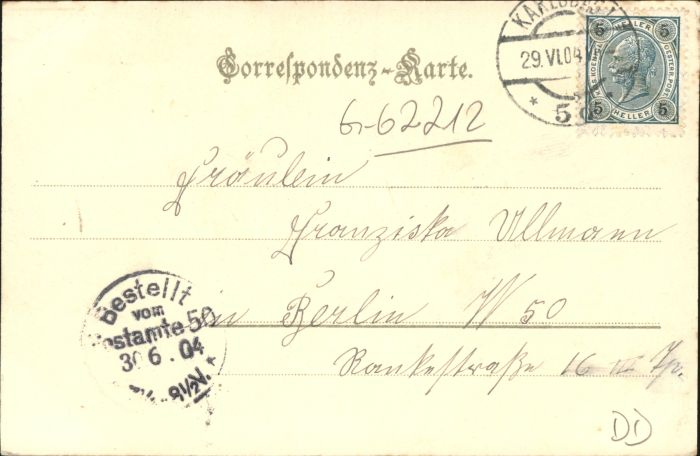 Correspondenz-Karte.
KARLSBAD
29.VI.04
5
5 HELLER 5
KAIS. KOENIGL. OESTERR. POST
5 HELLER 5
6-62212
Fräulein
Franziska Ullmann
in Berlin W 50
Rankestraße 16
Bestellt
vom
Postamte 50
30 6.04
8½V.
DD